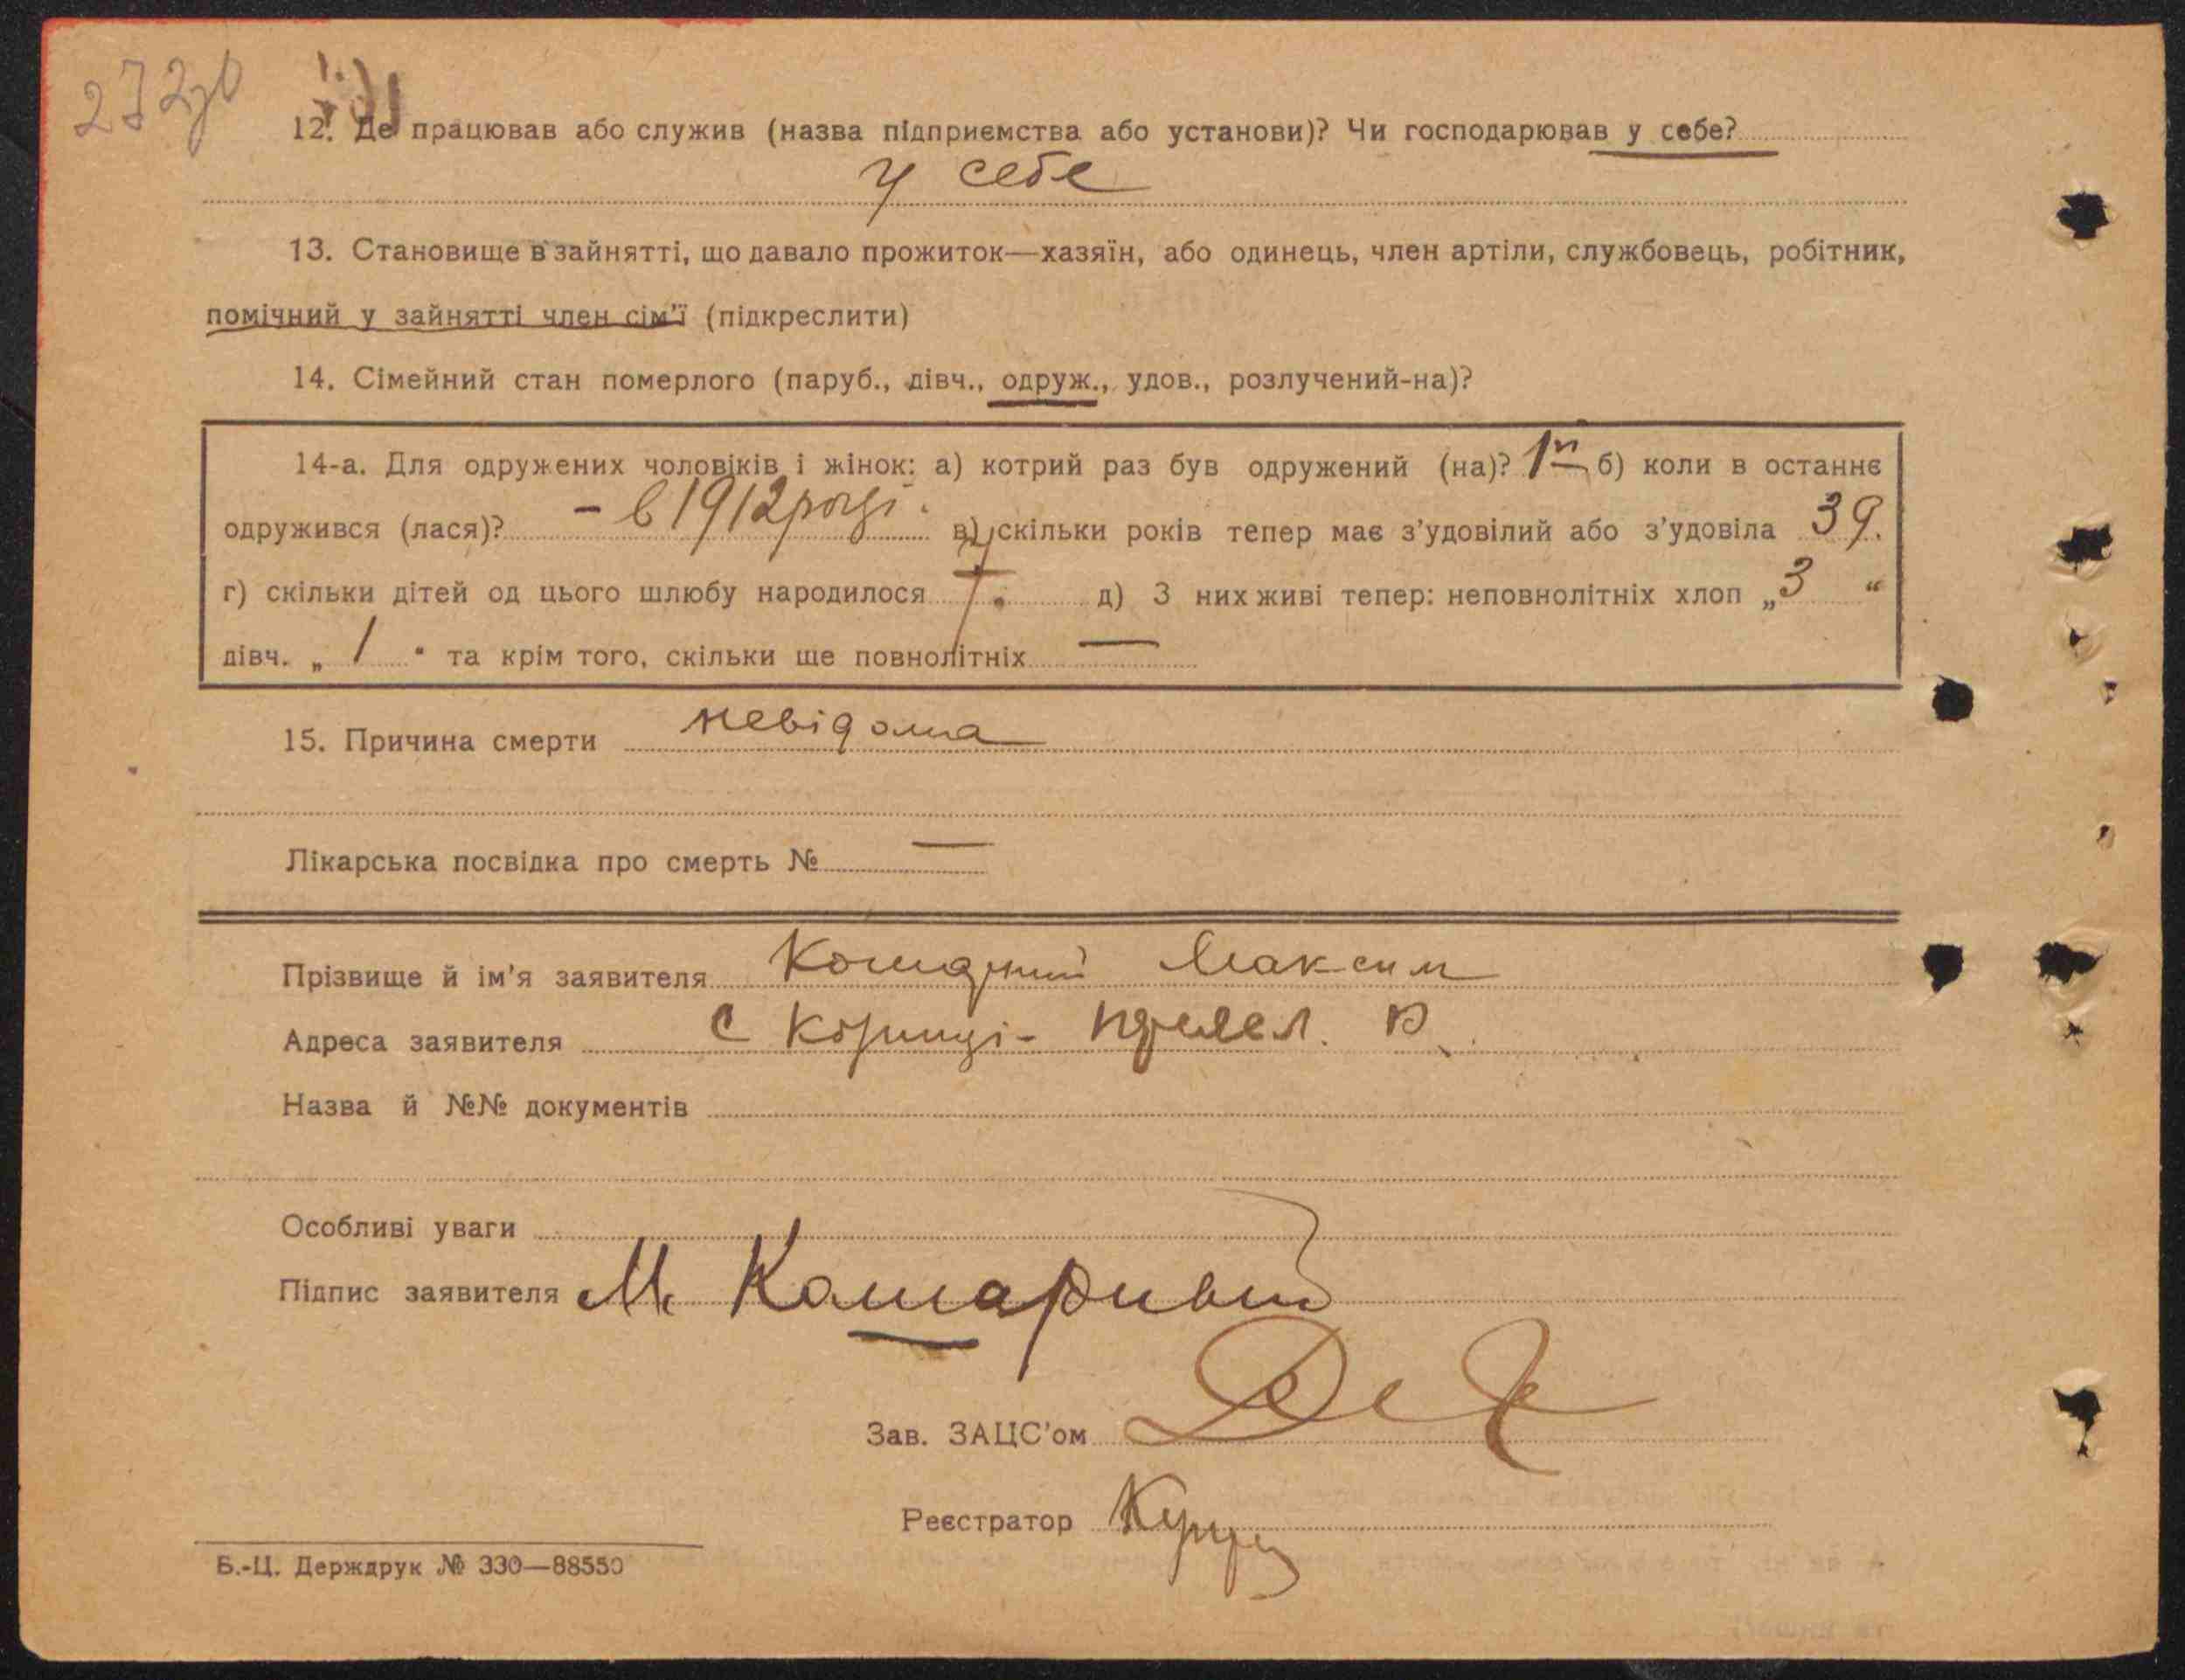 272зв
12. Де працював або служив (назва підприємства або установи)? Чи господарював у себе?
у себе
13. Становище в зайнятті, що давало прожиток—хазяїн, або одинець, член артіли, службовець, робітник,
помічний у зайнятті член сім'ї (підкреслити)
14. Сімейний стан померлого (паруб., дівч., одруж., удов., розлучений-на)?
14-а. Для одружених чоловіків і жінок: а) котрий раз був одружений (на)? 1й б) коли в останнє
одружився (лася)? - в 1912 році. в) скільки років тепер має з'удовілий або з'удовіла 39.
г) скільки дітей од цього шлюбу народилося 7. д) З них живі тепер: неповнолітніх хлоп „3“
дівч. „1“ та крім того, скільки ще повнолітніх —
15. Причина смерти невідома
Лікарська посвідка про смерть № —
Прізвище й ім'я заявителя Максим
Адреса заявителя с
Назва й №№ документів
Особливі уваги
Підпис заявителя М. Кошарный
Зав. ЗАЦС'ом
Реєстратор
Б.-Ц. Держдрук № 330—88550